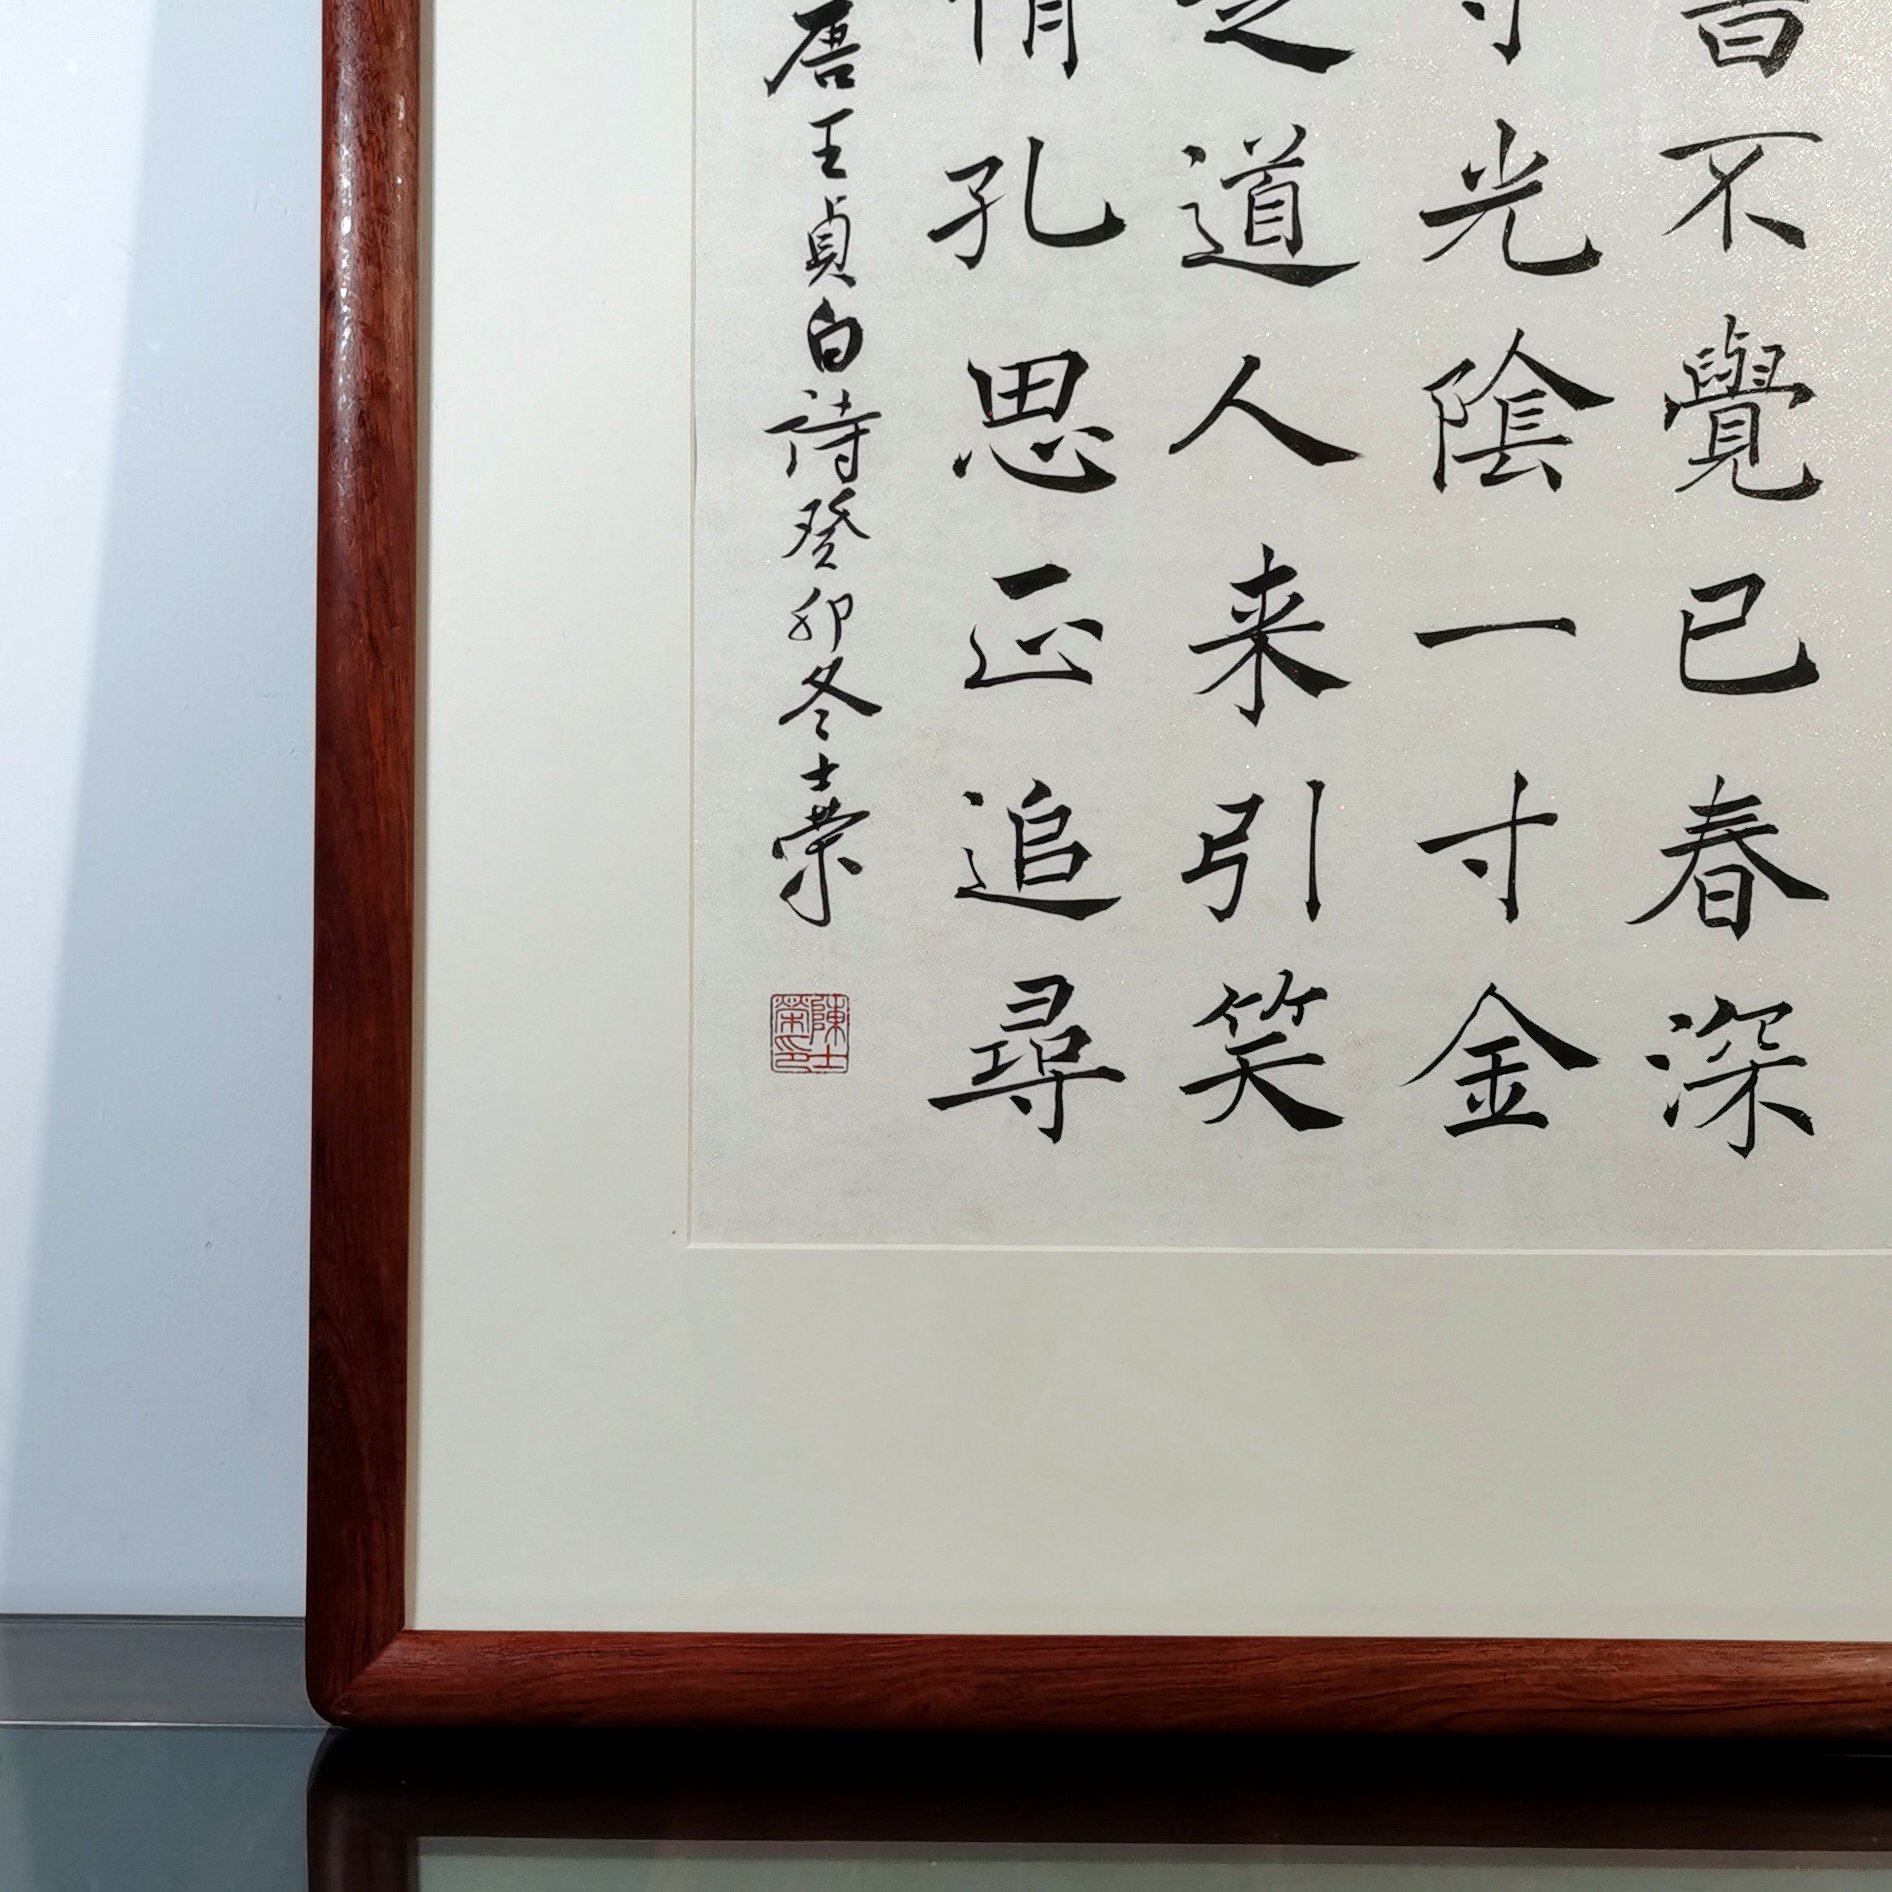 書不覺已春深
寸光陰一寸金
是道人来引笑
情孔思正追尋
唐王貞白詩癸卯冬士榮
陳士榮印